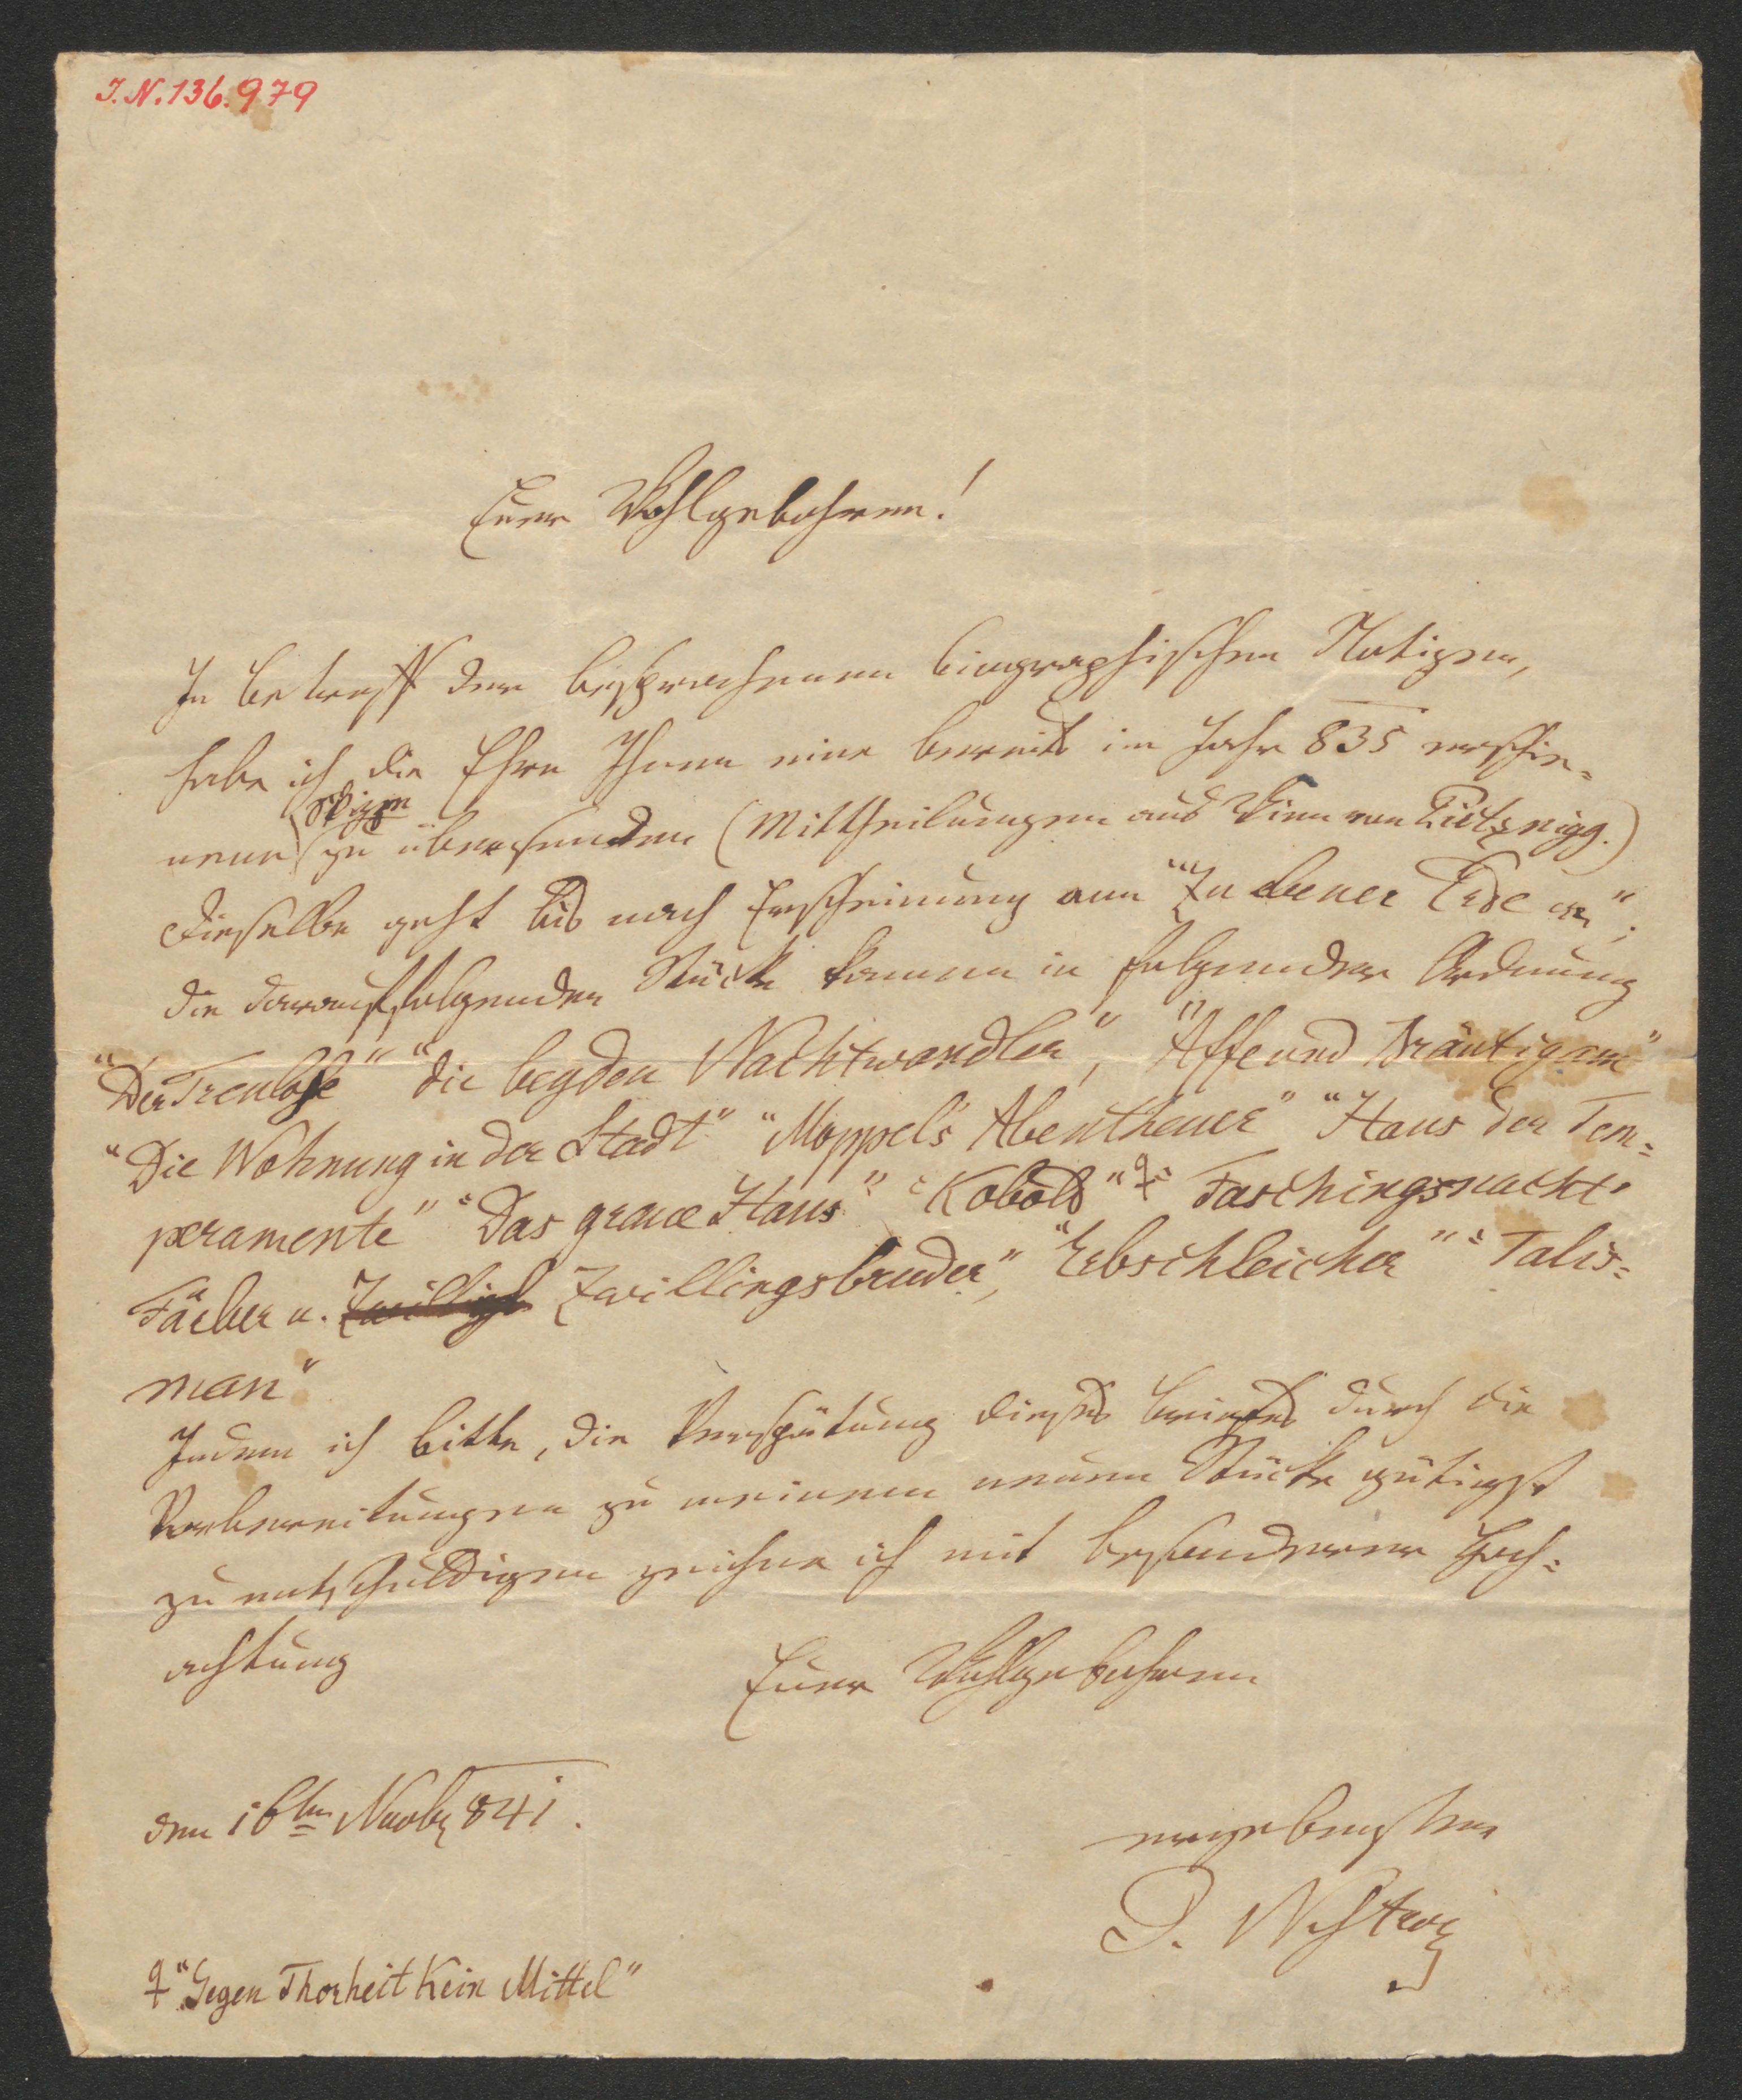 I.N. 136.979
Euer Wohlgebohren!
In Betreff der besprochenen biographischen Notizen,
habe ich die Ehre Ihnen eine bereits im Jahr 835 erschie=
Skizze
nene zu übersenden (Mittheilungen aus Wien von Pietznigg.)
Dieselbe geht bis nach Erscheinung von "Zu ebener Erde etc";
die darauffolgenden Stücke kamen in folgender Ordnung
"Der Treulose" "die beyden Nachtwandler", "Affe und Bräutigam"
"Die Wohnung in der Stadt" "Moppel's Abentheuer" "Haus der Tem=
peramente" "Das graue Haus" "Kobold" "♀ Faschingsnacht"
Färber u. Zwillingsbruder", "Erbschleicher" "Talis=
man"
Indem ich bitte, die Verspätung dieses Briefes durch die
Vorbereitungen zu meinem neuen Stücke gütigst
zu entschuldigen zeichne ich mit besonderer Hoch=
achtung
Euer Wohlgebohren
den 16ten Novbr 841.
ergebenster
J. Nestroy
♀ "Gegen Thorheit kein Mittel"